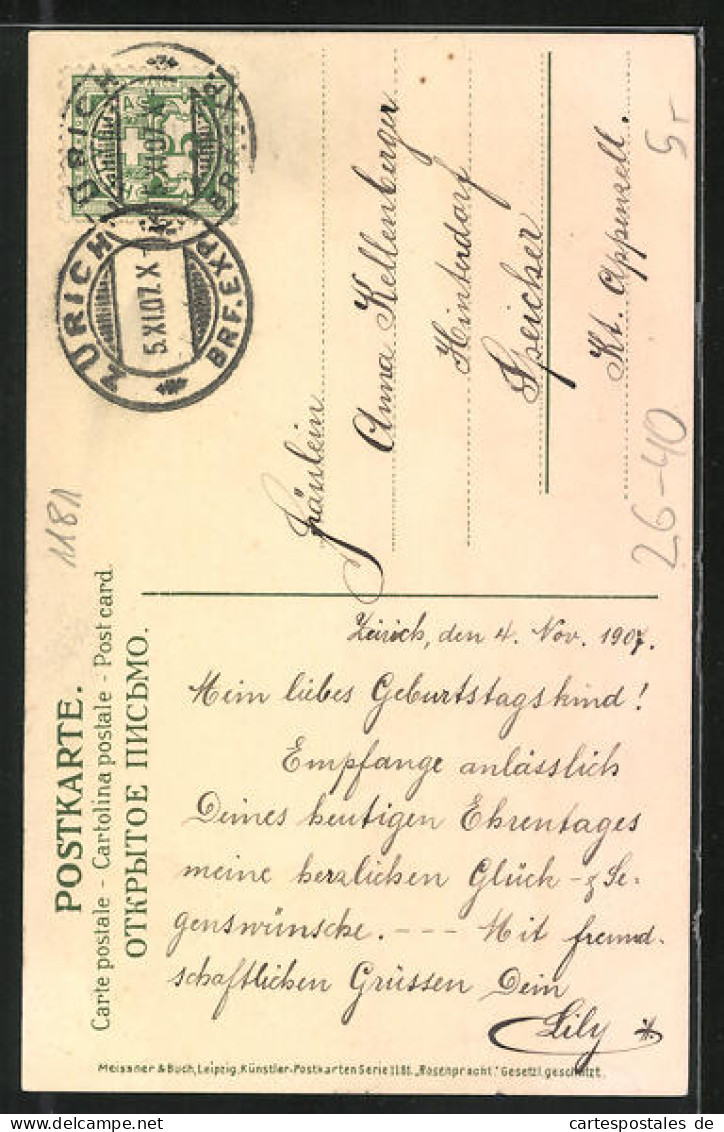 ZÜRICH
5.XI.07.X-
BRF.EXP.
Fräulein
Anna Kellenberger
Hinterdorf
Speicher
Kt. Appenzell.
5-
26-40
1181
POSTKARTE.
Carte postale - Cartolina postale - Post card.
ОТКРЫТОЕ ПИСЬМО.
Zürich, den 4. Nov. 1907.
Mein liebes Geburtstagskind!
Empfange anlässlich
Deines heutigen Ehrentages
meine herzlichen Glück- & Se-
genswünsche. - - - Mit freund-
schaftlichen Grüssen Dein
Lily
Meissner & Buch, Leipzig, Künstler-Postkarten Serie 1181. „Rosenpracht." Gesetzl. geschützt.
cartespostales_de
www.cartospostales.de